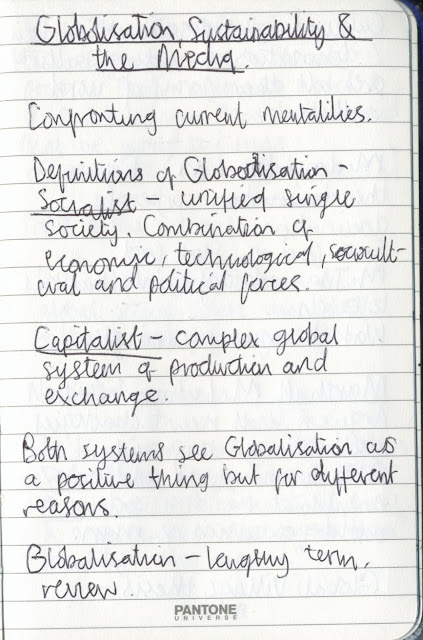 Globalisation, Sustainability &
the Media.
Confronting current mentalities.
Definitions of Globalisation -
Socialist - unified single
society. Combination of
economic, technological, sociocult-
ural and political forces.
Capitalist - complex global
system of production and
exchange.
Both systems see Globalisation as
a positive thing but for different
reasons.
Globalisation - lengthy term.
review.
PANTONE
UNIVERSE